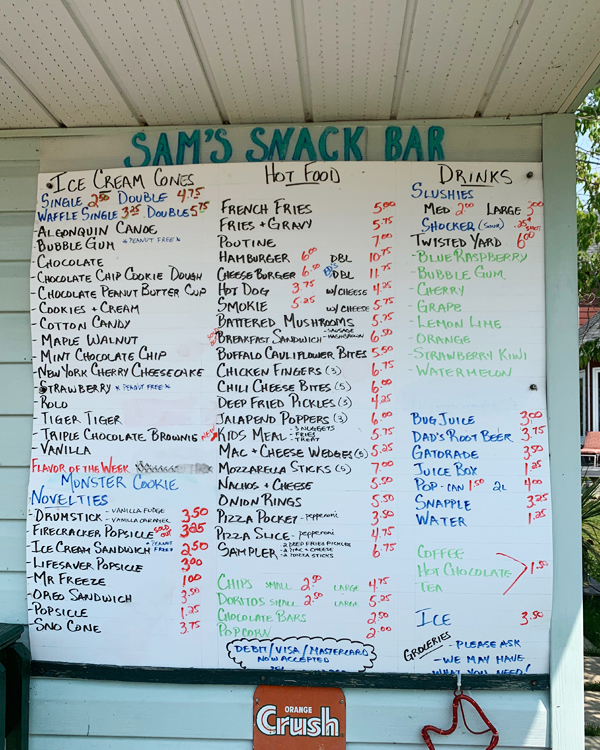 SAM'S SNACK BAR
ICE CREAM CONES
SINGLE 2.50 DOUBLE 4.75
WAFFLE SINGLE 3.25 DOUBLE 5.75
- ALGONQUIN CANOE
- BUBBLE GUM * PEANUT FREE *
- CHOCOLATE
- CHOCOLATE CHIP COOKIE DOUGH
- CHOCOLATE PEANUT BUTTER CUP
- COOKIES + CREAM
- COTTON CANDY
- MAPLE WALNUT
- MINT CHOCOLATE CHIP
- NEW YORK CHERRY CHEESECAKE
- STRAWBERRY * PEANUT FREE *
- ROLO
- TIGER TIGER
- TRIPLE CHOCOLATE BROWNIE NEW
- VANILLA
FLAVOR OF THE WEEK
MONSTER COOKIE
NOVELTIES
- DRUMSTICK - VANILLA FUDGE - VANILLA CARAMEL 3.50
- FIRECRACKER POPSICLE SOLD OUT 3.25
- ICE CREAM SANDWICH * PEANUT FREE * 2.50
- LIFESAVER POPSICLE 3.00
- MR FREEZE 1.00
- OREO SANDWICH 3.50
- POPSICLE 1.25
- SNO CONE 3.75
HOT FOOD
FRENCH FRIES 5.00
FRIES + GRAVY 5.75
POUTINE 7.00
HAMBURGER 6.00 DBL 10.75
CHEESE BURGER 6.50 DBL 11.75
HOT DOG 3.75 W/CHEESE 4.25
SMOKIE 5.25 W/CHEESE 5.75
BATTERED MUSHROOMS 5.75
BREAKFAST SANDWICH - SAUSAGE - HASHBROWN 6.50
BUFFALO CAULIFLOWER BITES 5.50
CHICKEN FINGERS (3) 6.75
CHILI CHEESE BITES (5) 6.00
DEEP FRIED PICKLES (3) 4.25
JALAPENO POPPERS (3) 6.00
KIDS MEAL - 3 NUGGETS - FRIES - TREAT 5.75
MAC + CHEESE WEDGES (5) 5.25
MOZZARELLA STICKS (5) 7.00
NACHOS + CHEESE 5.50
ONION RINGS 5.50
PIZZA POCKET - pepperoni 3.50
PIZZA SLICE - pepperoni 4.75
SAMPLER - 2 DEEP FRIED PICKLES - 2 MAC + CHEESE - 2 MOZZA STICKS 6.75
CHIPS SMALL 2.50 LARGE 4.75
DORITOS SMALL 2.50 LARGE 5.25
CHOCOLATE BARS 2.50
POPCORN 2.00
DEBIT/VISA/MASTERCARD
NOW ACCEPTED
DRINKS
SLUSHIES
MED 2.00 LARGE 3.00
SHOCKER (SOUR) .25¢ SHOT
TWISTED YARD 6.00
- BLUE RASPBERRY
- BUBBLE GUM
- CHERRY
- GRAPE
- LEMON LIME
- ORANGE
- STRAWBERRY KIWI
- WATERMELON
BUG JUICE 3.00
DAD'S ROOT BEER 3.75
GATORADE 3.50
JUICE BOX 1.25
POP - CAN 1.50 2L 4.00
SNAPPLE 3.25
WATER 1.25
COFFEE
HOT CHOCOLATE 1.50
TEA
ICE 3.50
GROCERIES - PLEASE ASK
- WE MAY HAVE
WHAT YOU NEED!
ORANGE
Crush